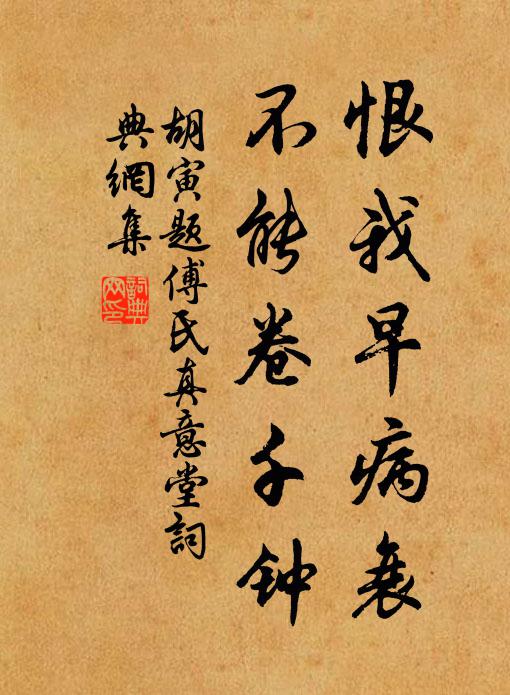 恨我早病衰
不能卷千钟
胡寅题傅氏真意堂詞
典網集
詞典
网印